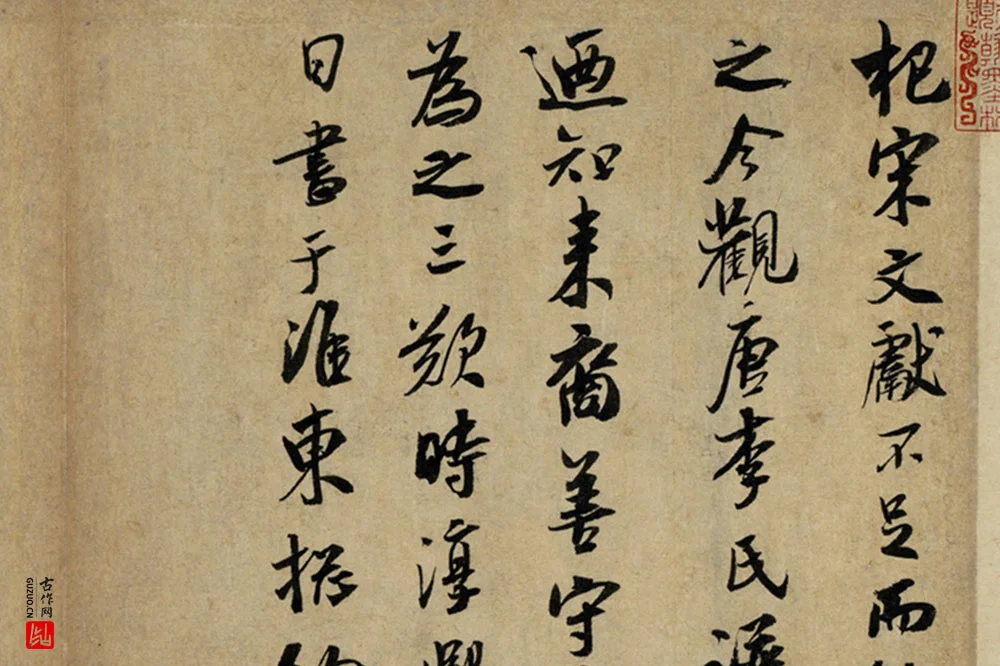 杞宋文獻不足而
之今觀唐李氏
迺知耒裔善守
為之三歎時淳熙
日書于淮東揔
古作网
GUZUO.CN